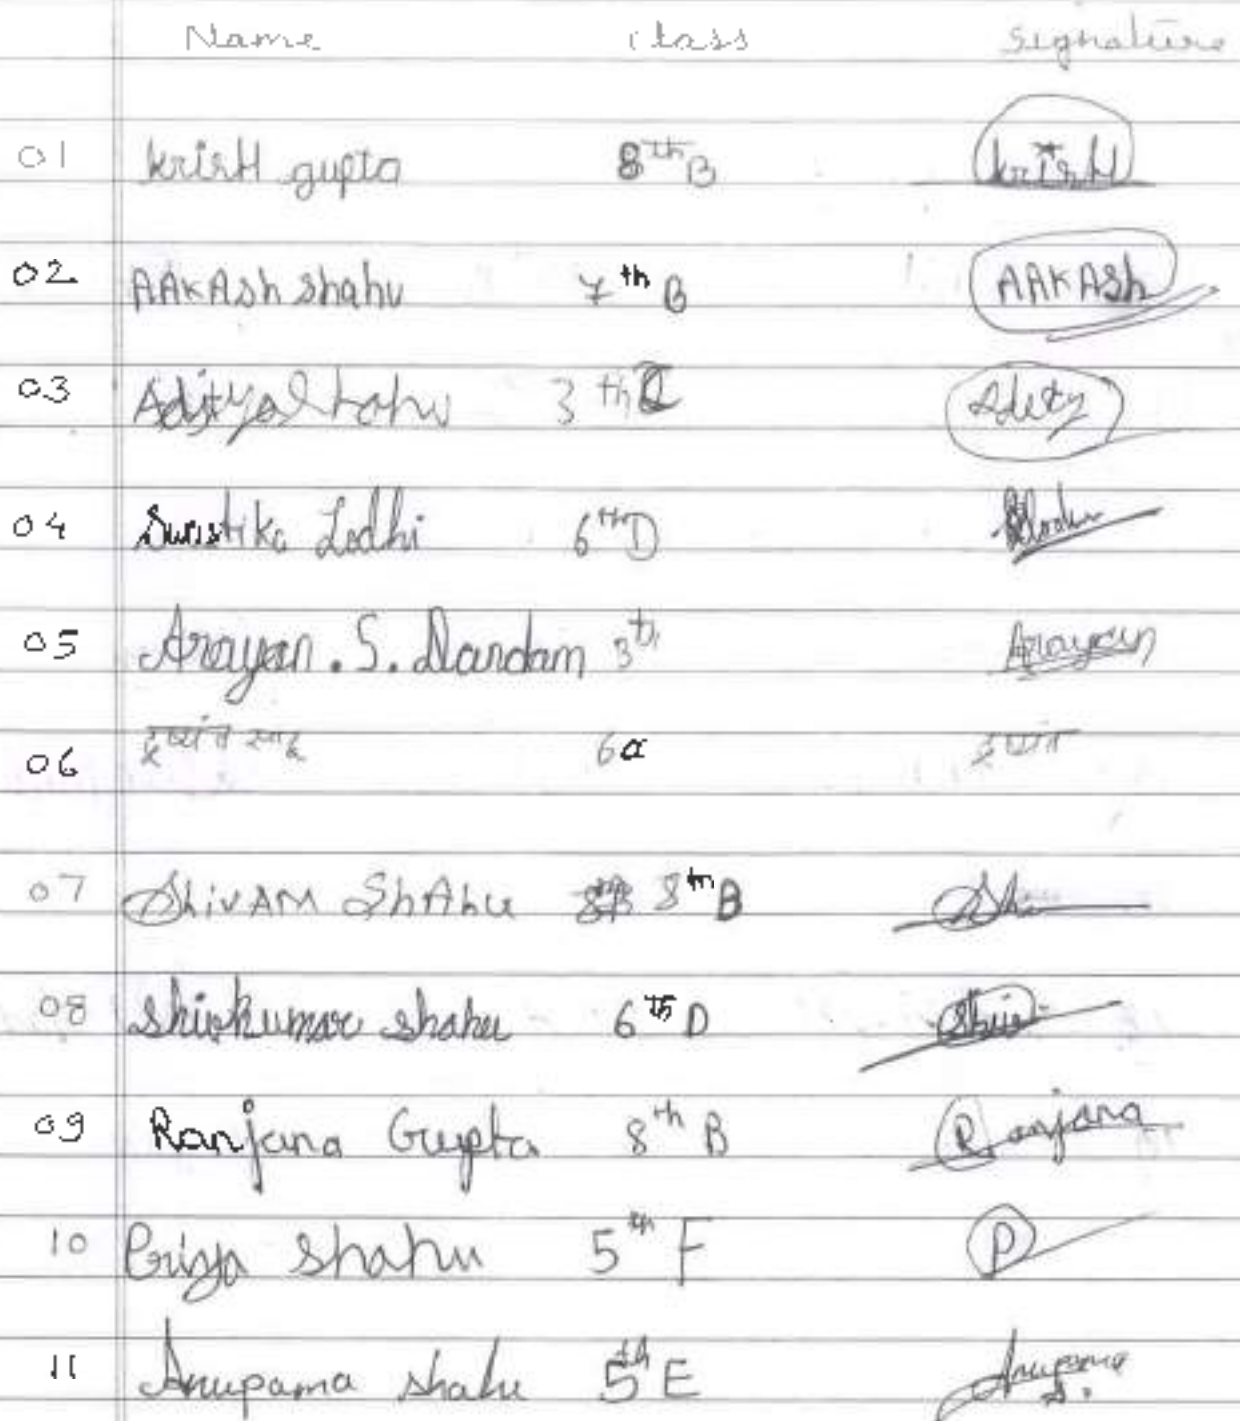 Name Class Signature
01 krisH gupta 8th B krisH
02 AAKASh shahu 7th B AAKASh
03 Aditya Shahu 3th C Adity
04 Swastika Lodhi 6th D
05 Arayan . S. Nandam 3th Arayan
06 साहू 6a
07 ShivAM ShAhu 8th B Shi
08 Shivkumar shahu 6th D Shiv
09 Ranjana Gupta 8th B Ranjana
10 Priya Shahu 5th F P
11 Anupama shahu 5th E Anupama S.